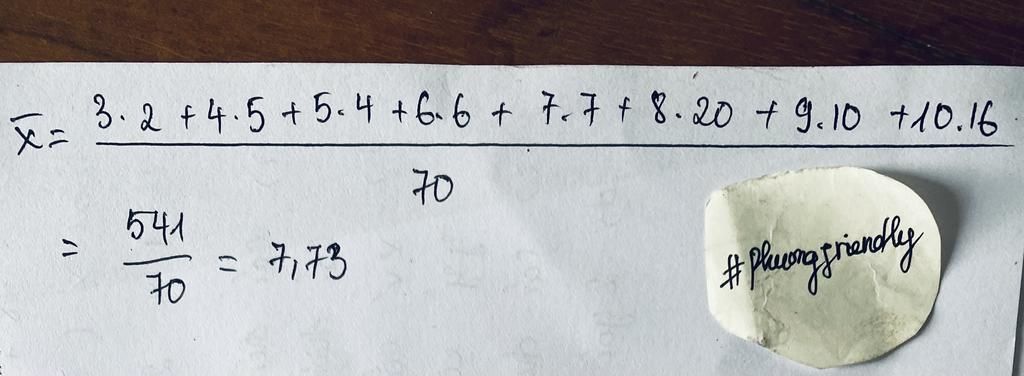 x̄ = 3.2 + 4.5 + 5.4 + 6.6 + 7.7 + 8.20 + 9.10 + 10.16
70
= 541/70 = 7,73
#phuongfriendly